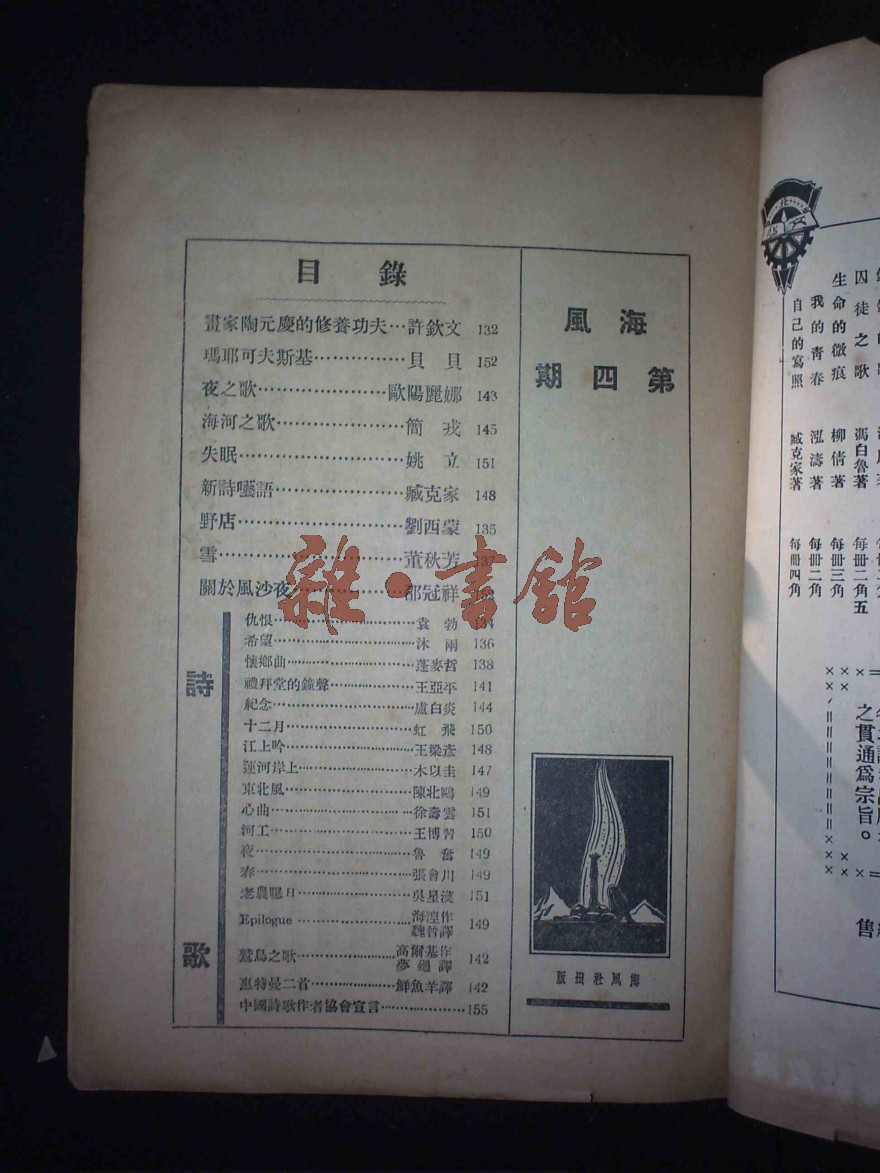 海風
第四期
目錄
畫家陶元慶的修養功夫…許欽文 132
瑪耶可夫斯基……………貝貝 152
夜之歌……………歐陽麗娜 143
海河之歌……………簡戎 145
失眠……………姚立 151
新詩囈語……………臧克家 148
野店……………劉西蒙 135
雪……………董秋芳 137
關於風沙夜……………邵冠祥
詩歌
仇恨……………袁勃 134
希望……………沐雨 136
懷鄉曲……………蓬麥哲 138
禮拜堂的鐘聲……………王亞平 141
紀念……………盧白炎 144
十二月……………虹飛 150
江上吟……………王梁彥 148
運河岸上……………木以圭 147
東北風……………陳北鷗 149
心曲……………徐壽雲 151
河工……………王博習 150
夜……………魯奮 149
春……………張會川 149
老農嘅日……………吳星漢 151
Epilogue……………海涅作 魏晉譯 149
鷲鳥之歌……………高爾基作 夢廻譯 142
惠特曼二首……………鮮魚羊譯 142
中國詩歌作者協會宣言……………155
海風社出版
雜·書館
北
囚徒之歌 馮白魯著 每冊二角五
生命的微痕 柳倩著 每冊三角
我的青春 泓濤著 每冊二角
自己的寫照 臧克家著 每冊四角
之貫通爲宗旨。
售